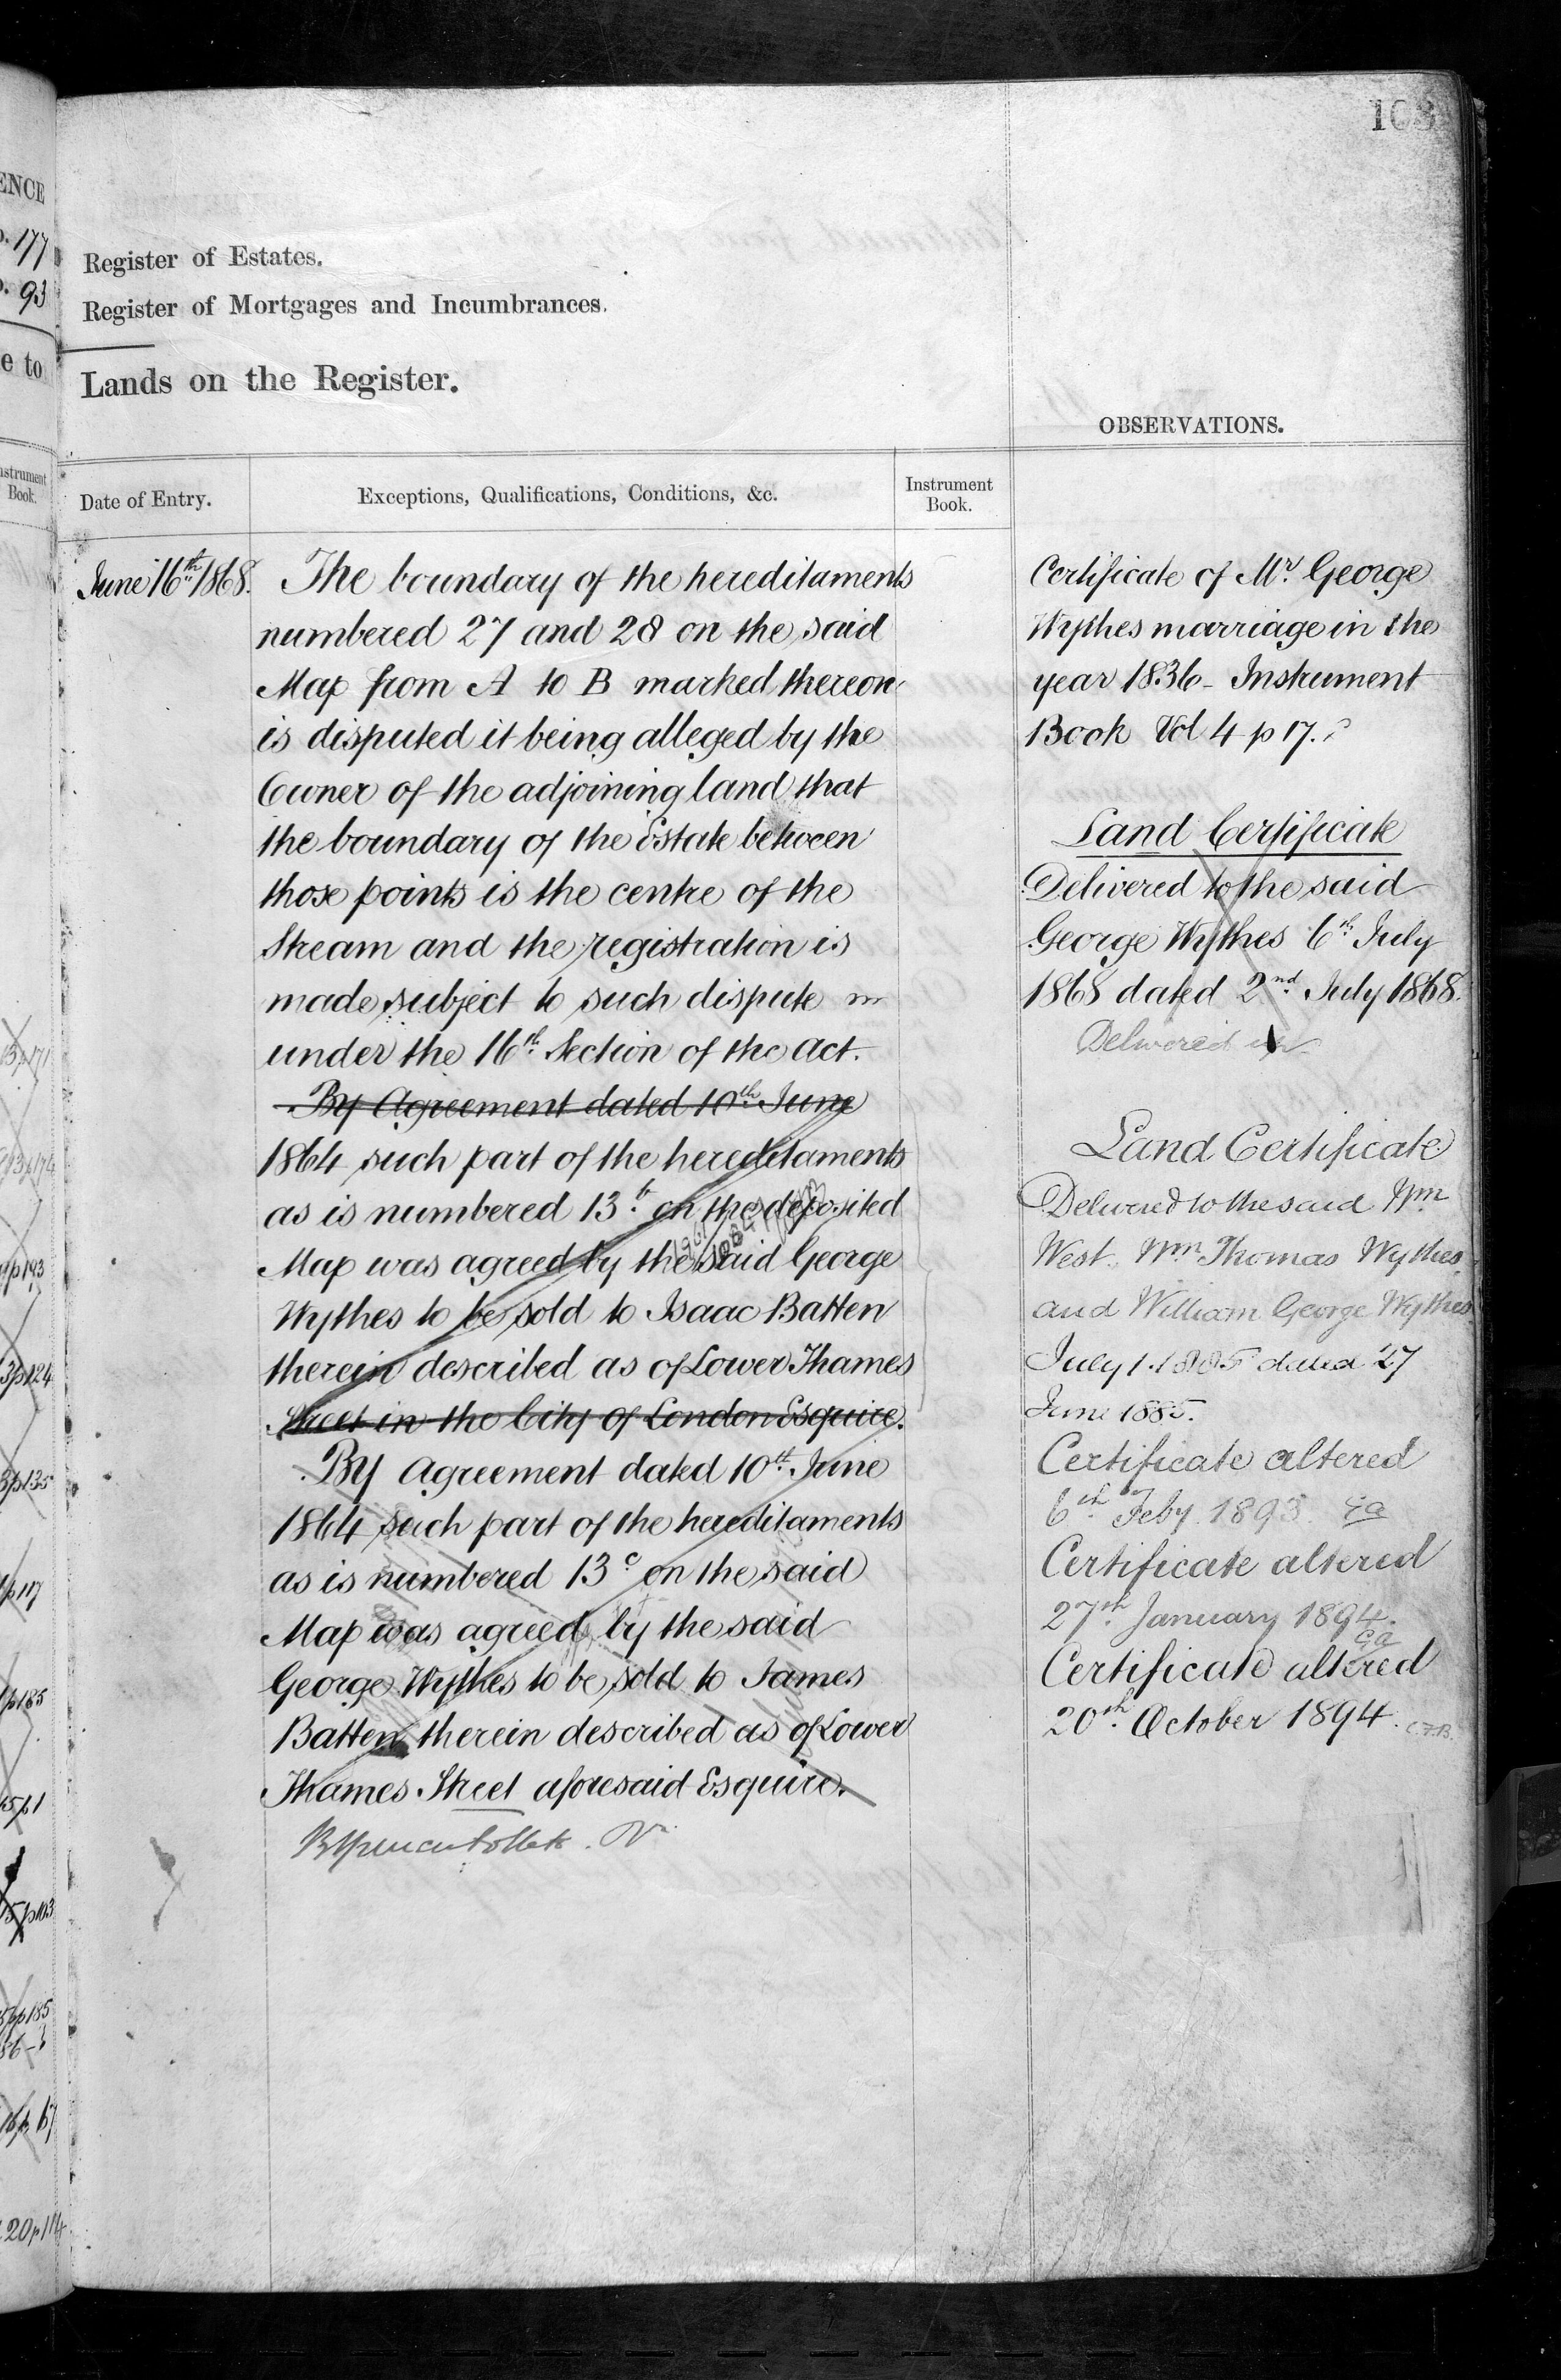 108
Register of Estates.
Register of Mortgages and Incumbrances.
Lands on the Register.
OBSERVATIONS.
Date of Entry.
Exceptions, Qualifications, Conditions, &c.
Instrument
Book.
June 16th 1868.
The boundary of the hereditaments
numbered 27 and 28 on the said
Map from A to B marked thereon
is disputed it being alleged by the
Owner of the adjoining land that
the boundary of the Estate between
those points is the centre of the
Stream and the registration is
made subject to such dispute
under the 16th Section of the Act.
By Agreement dated 10th June
1864 such part of the hereditaments
as is numbered 13 on the deposited
Map was agreed by the said George
Wythes to be sold to Isaac Batten
therein described as of Lower Thames
Street in the City of London Esquire.
By Agreement dated 10th June
1864 such part of the hereditaments
as is numbered 13c on the said
Map was agreed by the said
George Wythes to be sold to James
Batten therein described as of Lower
Thames Street aforesaid Esquire.
Certificate of Mr George
Wythes marriage in the
year 1836 - Instrument
Book Vol 4 p 17.
Land Certificate
Delivered to the said
George Wythes 6th July
1868 dated 2nd July 1868.
Delivered up
Land Certificate
Delivered to the said Wm
West. Wm Thomas Wythes
and William George Wythes
July 1. 1885 dated 27
June 1885.
Certificate altered
6th Feby 1893.
Certificate altered
27th January 1894.
Certificate altered
20th October 1894. C.F.B.
ENCE
p. 177
p. 93
e to
nstrument
Book.
13 p 171
13 p 174
p 193
3 p 124
3 p 135
p 117
p 185
15 p 1
5 p 103
5 p 185
20 p 114